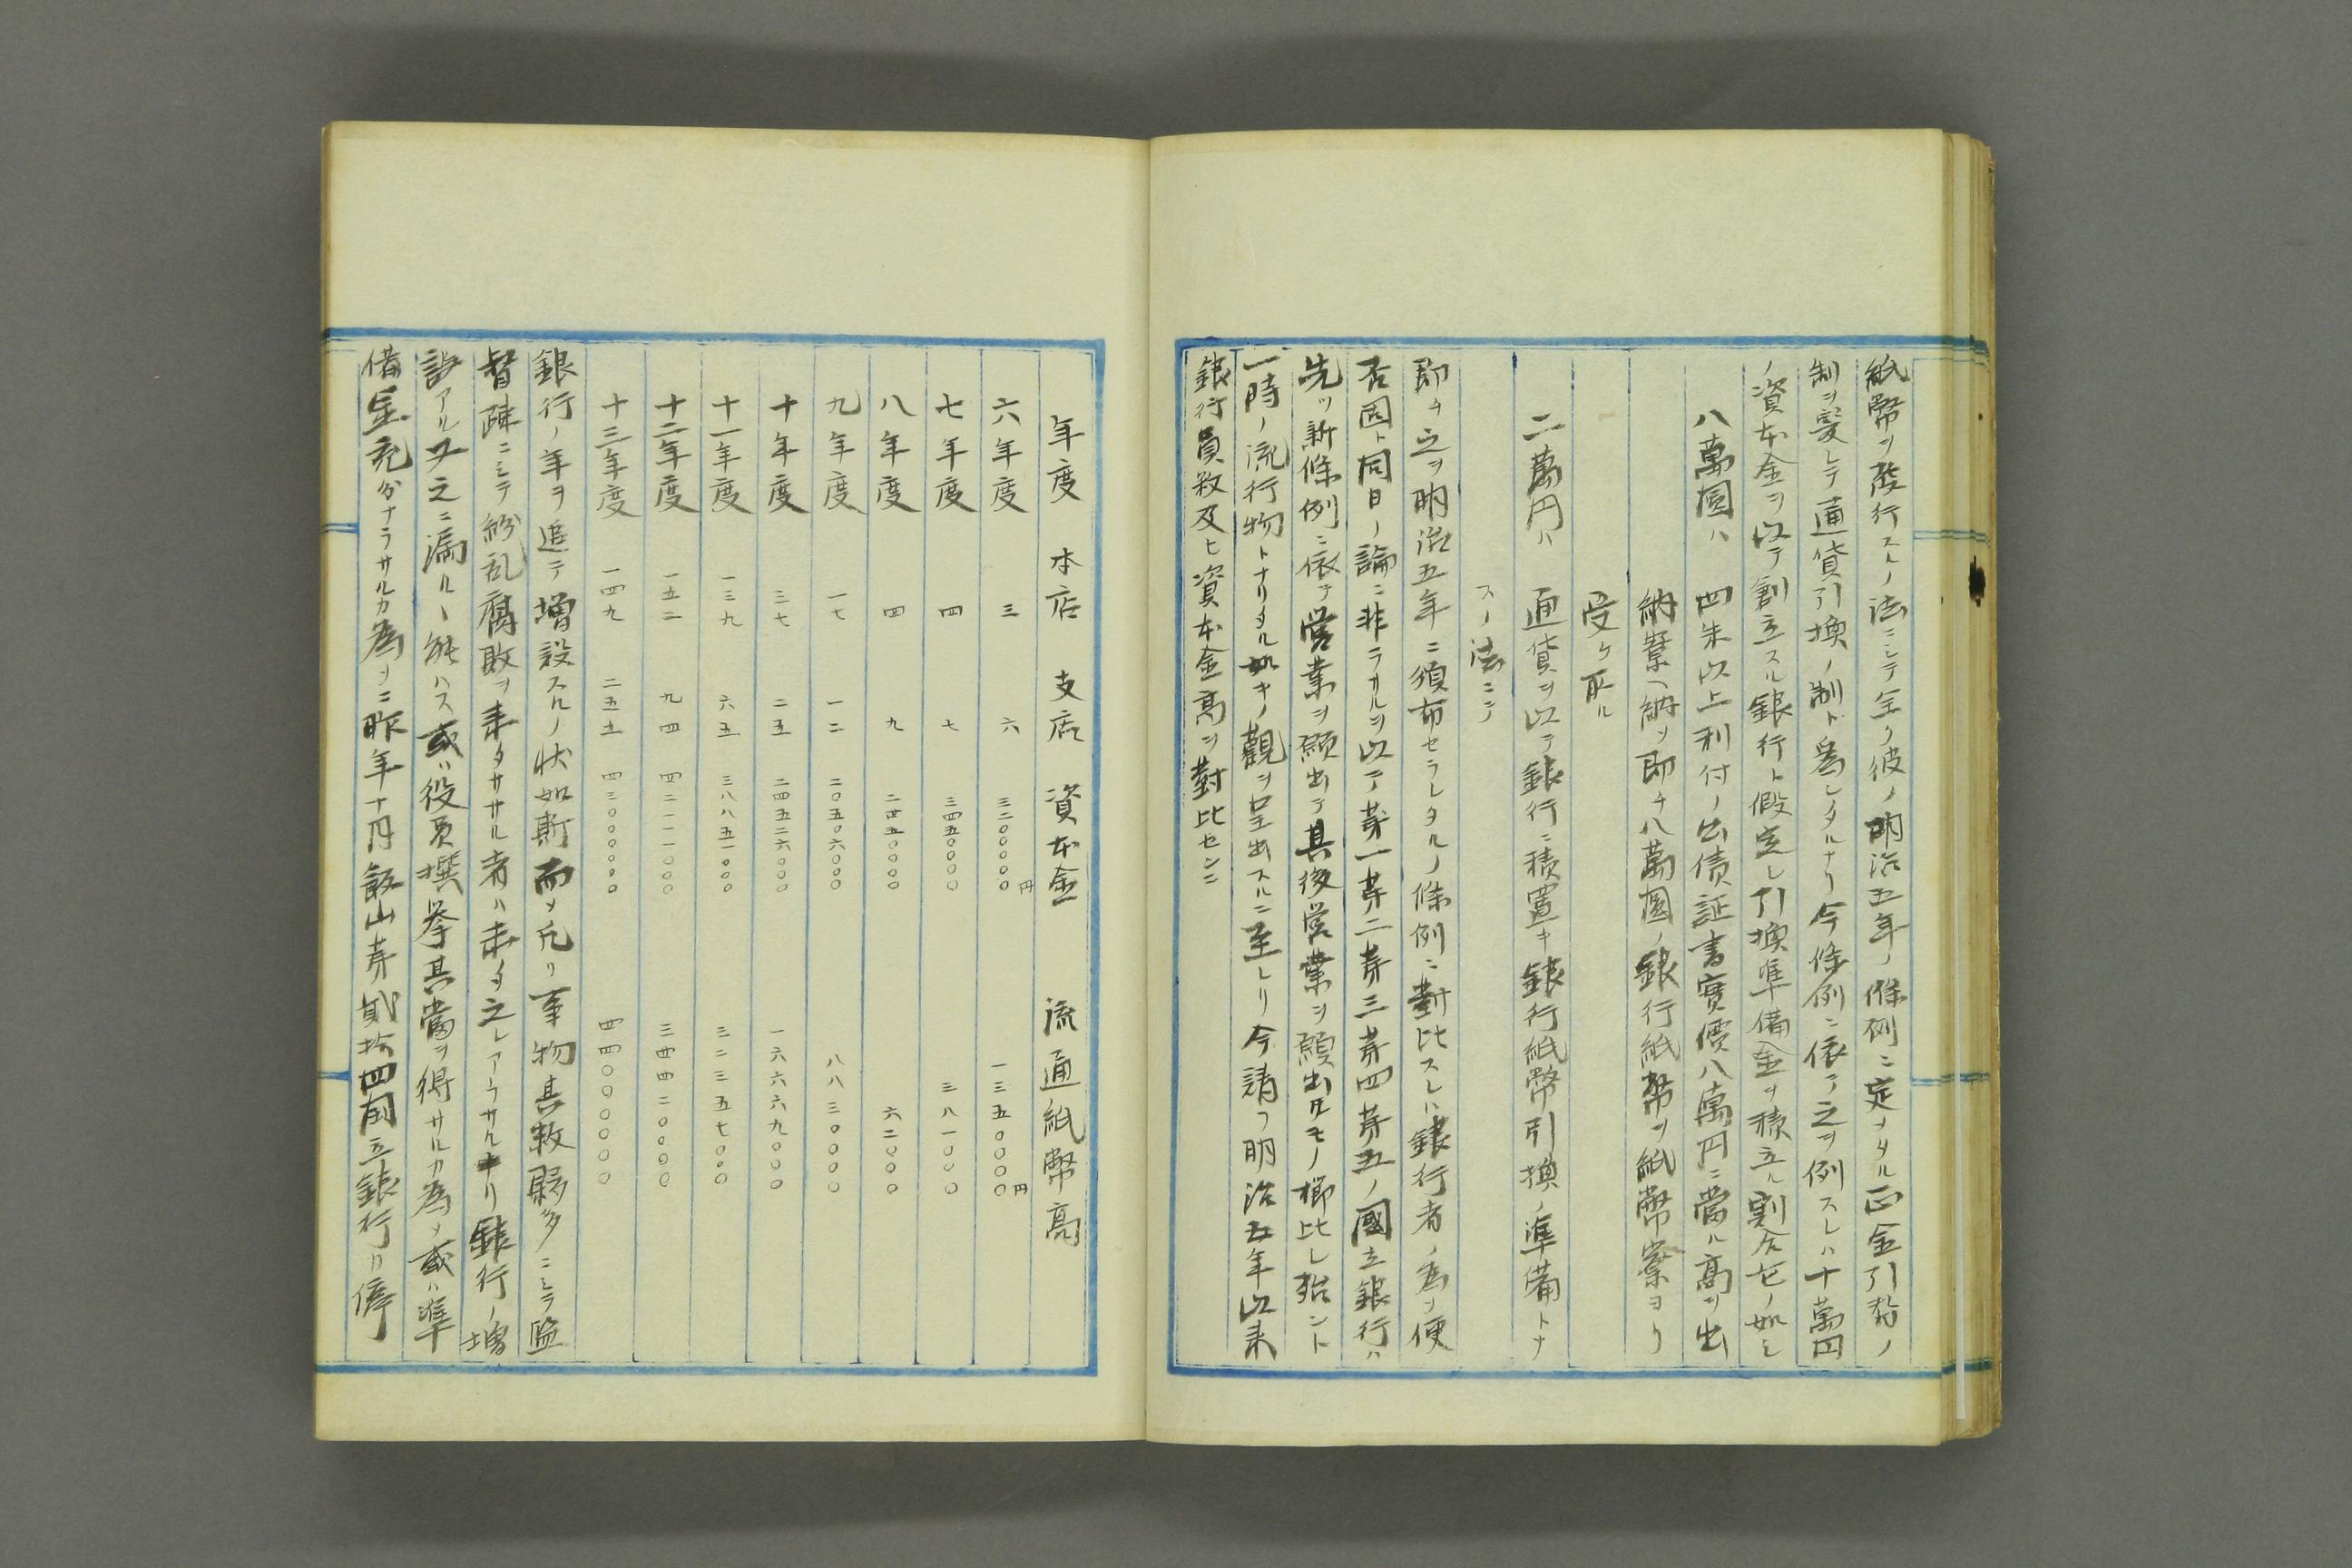 紙幣ヲ發行スルノ法ニシテ全ク彼ノ明治五年ノ條例ニ定メタル正金引換ノ
制ヲ変シテ通貨引換ノ制ト為シタルナリ今條例ニ依テ之ヲ例スレハ十萬円
ノ資本金ヲ以テ創立スル銀行ト假定シ引換準備金ヲ積立ル割合左ノ如シ
八萬圓ハ 四朱以上利付ノ公債証書實價八萬円ニ當ル高ヲ出
納寮ヘ納ツ即チ八萬圓ノ銀行紙幣ヲ紙幣寮ヨリ
受ケ取ル
二萬円ハ 通貨ヲ以テ銀行ニ積置キ銀行紙幣引換ノ準備トナ
スノ法ニシテ
即チ之ヲ明治五年ニ須布セラレタルノ條例ニ對比スレハ銀行者ノ為メ便
否固ト同日ノ論ニ非ラサルヲ以テ茅一茅二茅三茅四茅五ノ國立銀行ハ
先ツ新條例ニ依テ営業ヲ願出テ其後営業ヲ願出ルモノ櫛比シ殆ント
一時ノ流行物トナリタル如キノ觀ヲ呈出スルニ至レリ今請フ明治五年以来
銀行員数及ヒ資本金高ヲ對比センニ
年度 本店 支店 資本金 流通紙幣高
六年度 三 六 三二〇〇〇〇〇円 一三五〇〇〇〇円
七年度 四 七 三四五〇〇〇〇 三八一〇〇〇
八年度 四 九 二四五〇〇〇〇 六二〇〇〇
九年度 一七 一二 二〇五〇六〇〇〇 八八三〇〇〇〇
十年度 三七 二五 二四五二六〇〇〇 一六六六九〇〇〇
十一年度 一三九 六五 三八八五一〇〇〇 三二三五七〇〇〇
十二年度 一五二 九四 四二一一一〇〇〇 三四四二〇〇〇〇
十三年度 一四九 二五五 四三〇〇〇〇〇〇 四四〇〇〇〇〇〇
銀行ノ年ヲ追テ増設スルノ状如斯而メ凡リ事物其数夥多ニシテ監
督疎ニシテ紛乱腐敗ヲ来タササル者ハ未タ之レアラサルナリ銀行ノ増
設アル又之ニ漏ルヽ能ハス或ハ役員撰挙其當ヲ得サルカ為メ或ハ準
備金充分ナラサルカ為メニ昨年十月飯山茅貳拾四國立銀行ハ停